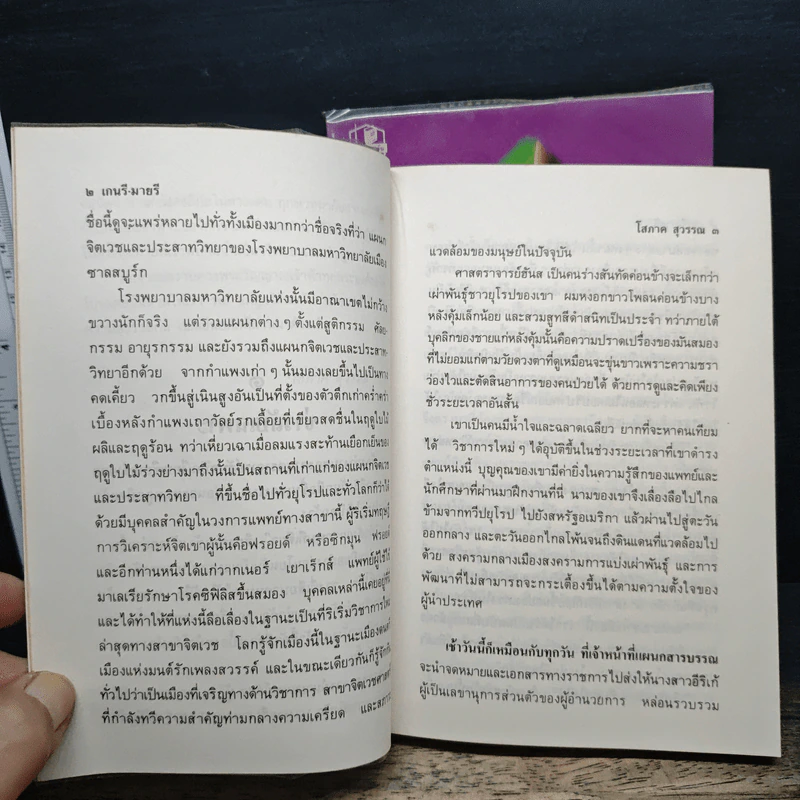 ๒ เกนรี-มายรี
ชื่อนี้ดูจะแพร่หลายไปทั่วทั้งเมืองมากกว่าชื่อจริงที่ว่า แผนก
จิตเวชและประสาทวิทยาของโรงพยาบาลมหาวิทยาลัยเมือง
ซาลสบูร์ก
โรงพยาบาลมหาวิทยาลัยแห่งนั้นมีอาณาเขตไม่กว้าง
ขวางนักก็จริง แต่รวมแผนกต่าง ๆ ตั้งแต่สูติกรรม ศัลย-
กรรม อายุรกรรม และยังรวมถึงแผนกจิตเวชและประสาท-
วิทยาอีกด้วย จากกำแพงเก่า ๆ นั้นมองเลยขึ้นไปเป็นทาง
คดเคี้ยว วกขึ้นสู่เนินสูงอันเป็นที่ตั้งของตัวตึกเก่าคร่ำคร่า
เบื้องหลังกำแพงเถาวัลย์รกเลื้อยที่เขียวสดชื่นในฤดูใบไม้
ผลิและฤดูร้อน ทว่าเหี่ยวเฉาเมื่อลมแรงสะท้านเยือกเย็นของ
ฤดูใบไม้ร่วงย่างมาถึงนั้นเป็นสถานที่เก่าแก่ของแผนกจิตเวช
และประสาทวิทยา ที่ขึ้นชื่อไปทั่วยุโรปและทั่วโลกก็ว่าได้
ด้วยมีบุคคลสำคัญในวงการแพทย์ทางสาขานี้ ผู้ริเริ่มทฤษฎี
การวิเคราะห์จิตเขาผู้นั้นคือฟรอยด์ หรือซิกมุน ฟรอยด์
และอีกท่านหนึ่งได้แก่วากเนอร์ เยาเร็กส์ แพทย์ผู้ใช้ไข้
มาเลเรียรักษาโรคซิฟิลิสขึ้นสมอง บุคคลเหล่านี้เคยอยู่ที่นี่
และได้ทำให้ที่แห่งนี้ลือเลื่องในฐานะเป็นที่ริเริ่มวิชาการใหม่
ล่าสุดทางสาขาจิตเวช โลกรู้จักเมืองนี้ในฐานะเมืองดนตรี
เมืองแห่งมนต์รักเพลงสวรรค์ และในขณะเดียวกันก็รู้จักกัน
ทั่วไปว่าเป็นเมืองที่เจริญทางด้านวิชาการ สาขาจิตเวชศาสตร์
ที่กำลังทวีความสำคัญท่ามกลางความเครียด และสภาพ
โสภาค สุวรรณ ๓
แวดล้อมของมนุษย์ในปัจจุบัน
ศาสตราจารย์ฮันส เป็นคนร่างสันทัดค่อนข้างจะเล็กกว่า
เผ่าพันธุ์ชาวยุโรปของเขา ผมหงอกขาวโพลนค่อนข้างบาง
หลังคุ้มเล็กน้อย และสวมสูทสีดำสนิทเป็นประจำ ทว่าภายใต้
บุคลิกของชายแก่หลังคุ้มนั้นคือความปราดเปรื่องของมันสมอง
ที่ไม่ยอมแก่ตามวัยดวงตาที่ดูเหมือนจะขุ่นขาวเพราะความชรา
ว่องไวและตัดสินอาการของคนป่วยได้ ด้วยการดูและคิดเพียง
ชั่วระยะเวลาอันสั้น
เขาเป็นคนมีน้ำใจและฉลาดเฉลียว ยากที่จะหาคนเทียม
ได้ วิชาการใหม่ ๆ ได้อุบัติขึ้นในช่วงระยะเวลาที่เขาดำรง
ตำแหน่งนี้ บุญคุณของเขามีค่ายิ่งในความรู้สึกของแพทย์และ
นักศึกษาที่ผ่านมาฝึกงานที่นี่ นามของเขาจึงเลื่องลือไปไกล
ข้ามจากทวีปยุโรป ไปยังสหรัฐอเมริกา แล้วผ่านไปสู่ตะวัน
ออกกลาง และตะวันออกไกลโพ้นจนถึงดินแดนที่แวดล้อมไป
ด้วย สงครามกลางเมืองสงครามการแบ่งเผ่าพันธุ์ และการ
พัฒนาที่ไม่สามารถจะกระเตื้องขึ้นได้ตามความตั้งใจของ
ผู้นำประเทศ
เช้าวันนี้ก็เหมือนกับทุกวัน ที่เจ้าหน้าที่แผนกสารบรรณ
จะนำจดหมายและเอกสารทางราชการไปส่งให้นางสาวอีริเก้
ผู้เป็นเลขานุการส่วนตัวของผู้อำนวยการ หล่อนรวบรวม